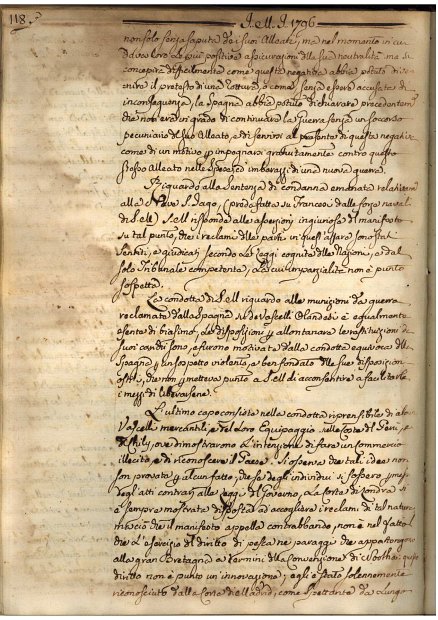 118.
J. M. J. 1796
non solo senza saputa de' suoi Alleati, ma nel momento in cui
dava loro le più positive assicurazioni della sua neutralità, ma si
concepirà difficilmente come questa negativa abbia potuto dive-
nire il pretesto di una rottura, o come, senza essere accusata d'
inconseguenza, la Spagna abbia potuto dichiarare precedentem.
che non era in grado di continuare la guerra senza un soccorso
pecuniario del suo Alleato, e di servirsi al presente di questa negativa
come di un motivo p impegnarsi gratuitamente contro questo
stesso Alleato nelle spese, ed imbarazzi di una nuova guerra.
Riguardo alla Sentenza di condanna emanata relativam.
alla Nave S. Jago, (preda fatta su' Francesi dalle forze navali
di S. M.) S. M. risponde alle asserzioni ingiuriose di manifesto
su tal punto, che i reclami delle parti in quest' affare sono stati
sentiti, e giudicati secondo le Leggi cognite delle Nazioni, e dal
solo Tribunale competente, la di cui imparzialità non è punto
sospetta.
La condotta di S. M. riguardo alle munizioni da guerra
reclamate dalla Spagna, de' Vascelli Olandesi è egualmente
esente di biasimo, le disposizioni p allontanare la restituzione de'
suoi carichi sono, e furono motivate dalla condotta equivoca della
Spagna, p un sospetto violento, e ben fondato delle sue disposizioni
ostili, che non p metteva punto a S. M. di acconsentire a facilitarle
i mezzi di liberarsene.
L'ultimo capo consiste nella condotta riprensibile di alcuni
Vascelli mercantili, e del loro Equipaggio sulle Coste del Perù, e
Chily, ove dimostrarono l'intenzione di fare un commercio
illecito, e di riconoscere il Paese. Si osserva che tali idee non
son provate p alcun fatto, che se degli individui si fossero p messi
degli atti contrarj alle Leggi del Governo, la Corte di Londra si
è sempre mostrata disposta ad accogliere i reclami di tal natura,
ma ciò che il manifesto appella contrabbando, non è nel fatto
che l'esercizio del diritto di pesca ne' paraggi che appartengono
alla gran Brettagna a' termini della Convenzione di questo
diritto non è punto un'innovazione; egli è stato solennemente
riconosciuto dalla Corte di Madrid, come spettante da lungo